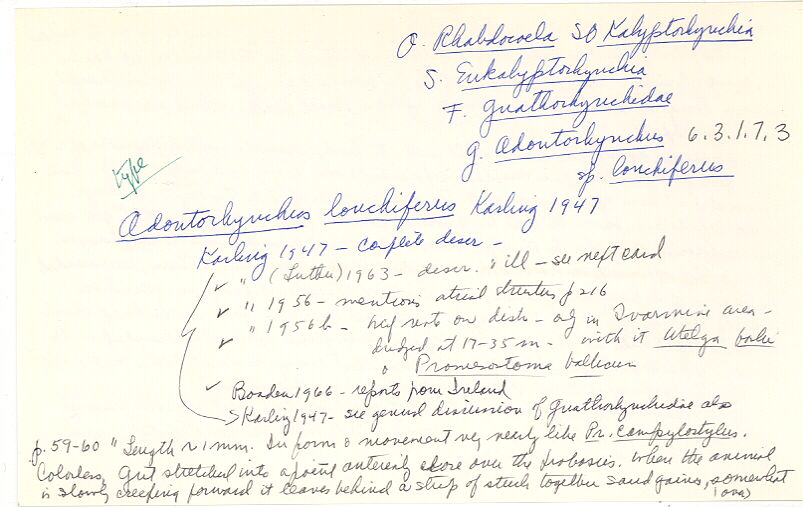 O. Rhabdocoela SO Kalyptorhynchia
S. Eukalyptorhynchia
F. Gnathorhynchidae
G. Odontorhynchus 6.3.1.7.3
sp. lonchiferus
type
Odontorhynchus lonchiferus Karling 1947
Karling 1947 - complete descr -
✓ " (Luther) 1963 - descr. & ill - see next card
✓ " 1956 - mentions atrial p 216
✓ " 1956b - rep. note on distr - in Tvärminne area -
dredged at 17-35 m - with it Utelga
& Promesostoma
✓ Boaden 1966 - reports from Ireland
> Karling 1947 - see general discussion of Gnathorhynchidae also
p. 59-60 "Length ~ 1 mm. In form & movement very nearly like Pr. campylostylus.
Colorless, Gut stretched into a point anteriorly above over the proboscis. When the animal
is slowly creeping forward it leaves behind a strip of stuck together sand grains, somewhat
(over)